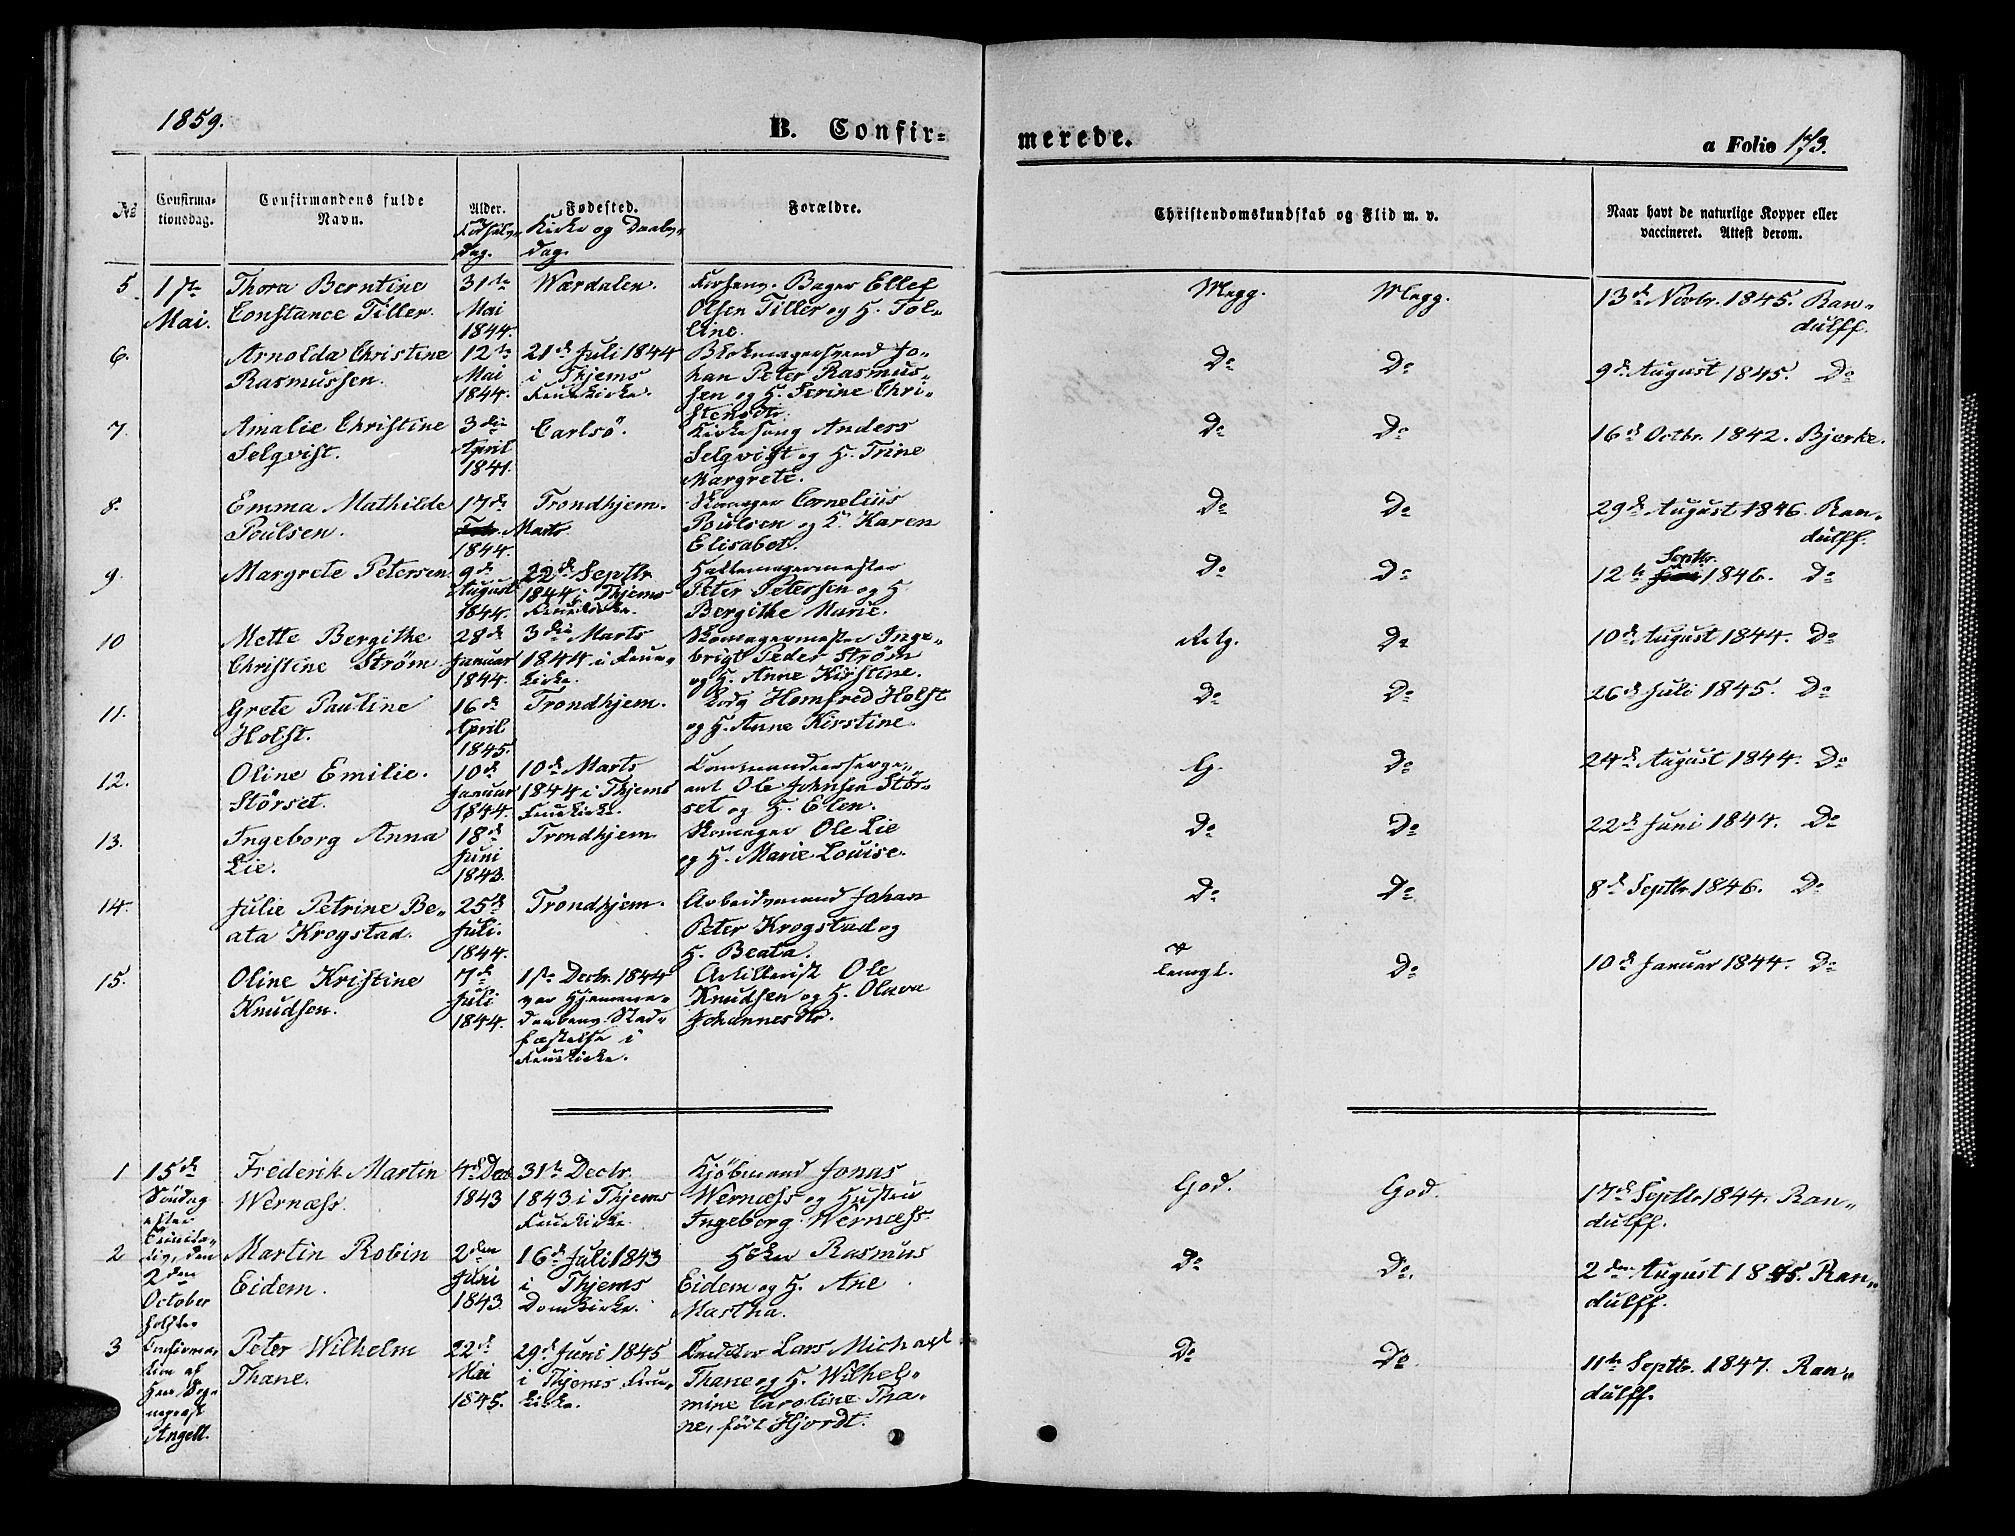 1859.
B. Confir-
merede.
a Folio 173.
№
Confirma-
tionsdag.
Confirmandens fulde
Navn.
Alder.
Fødselsr-
dag.
Fødested.
Kirke og Daabs-
dag.
Forældre.
Christendomskundskab og Flid m. v.
Naar havt de naturlige Kopper eller
vaccineret. Attest derom.
5.
1ste
Mai.
Thora Berntine
Constance Tiller.
31te
Mai
1844.
Værdalen.
Forhenv. Bager Ellef
Olsen Tiller og H. Tol-
line.
Megg. Megg.
13de Novbr. 1845. Ran-
dulff.
6.
Arnolda Christine
Rasmussen.
12te
Mai
1844.
21de Juli 1844
i Thjems
Fruekirke.
Blokmagersvend Jo-
han Peter Rasmus-
sen og H. Serine Chri-
stensdtr.
Do Do
9de August 1845. Do
7.
Amalie Christine
Selqvist.
3die
April
1841.
Carlsö.
Anders
Selqvist og H. Trine
Margrete.
Do Do
16de Octbr. 1842. Bjerke.
8.
Emma Mathilde
Poulsen.
17de
Febr. Marts
1844.
Trondhjem.
Skomager Cornelius
Poulsen og H. Karen
Elisabet.
Do Do
29de August 1846. Ran-
dulff.
9.
Margrete Petersen
9de
August
1844.
22de Septbr
1844 i Thjems
Fruekirke.
Hattemagermester
Peter Petersen og H
Bergithe Marie.
Do Do
Septbr.
12te Juni 1846. Do
10
Mette Bergithe
Christine Strøm
28de
Januar
1844.
3die Marts
1844 i Frue-
kirke.
Skomagermester Inge-
brigt Peder Strøm
og H. Anne Kirstine.
Do
10de August 1844. Do
11.
Grete Pauline
Holst.
16de
April
1845.
Trondhjem.
Homfred Holst
og H. Anne Kirstine
Do Do
26de Juli 1845. Do
12.
Oline Emilie
Störset.
10de
Januar
1844.
10de Marts
1844 i Thjems
Fruekirke.
Commandeerserge-
ant Ole Johnsen Stör-
set og H. Elen.
G. Do
24de August 1844. Do
13.
Ingeborg Anna
Lie.
18de
Juni
1843.
Trondhjem
Skomager Ole Lie
og H. Marie Louise.
Do Do
22de Juni 1844. Do
14.
Julie Petrine Be-
ata Krogstad.
25de
Juli.
1844.
Trondhjem.
Arbeidsmand Johan
Peter Krogstad og
H. Beata.
Do Do
8de Septbr 1846. Do
15.
Oline Kristine
Knudsen.
7de
Juli
1844.
1ste Decbr. 1844
var Hjemme-
daabens Stad-
fæstelse i
Fruekirke.
Artillerist Ole
Knudsen og H. Olava
Johannesdtr.
Do
10de Januar 1844. Do
1
15de
Søndag
efter
Trinita-
tis, den
2den
October
holdtes
Confirma-
tion af
Angell.
Frederik Martin
Wernæss.
4de Decb
1843
31te Decbr.
1843 i Thjems
Fruekirke
Kjöbmand Jonas
Wernæss og Hustru
Ingeborg Wernæss
God. God.
17de Septbr 1844. Ran-
dulff.
2
Martin Robin
Eidem.
2den
Juni
1843.
16de Juli 1843
i Thjems
Domkirke.
Høker Rasmus
Eidem og H. Ane
Martha.
Do Do.
2den August 1845. Ran-
dulff.
3
Peter Wilhelm
Thane.
22de
Mai
1845.
29de Juni 1845
i Thjems Frue-
kirke.
Lars Michael
Thane og H. Wilhel-
mine Caroline Tha-
ne, født Hjordt.
Do Do
11te Septbr. 1847. Ran-
dulff.